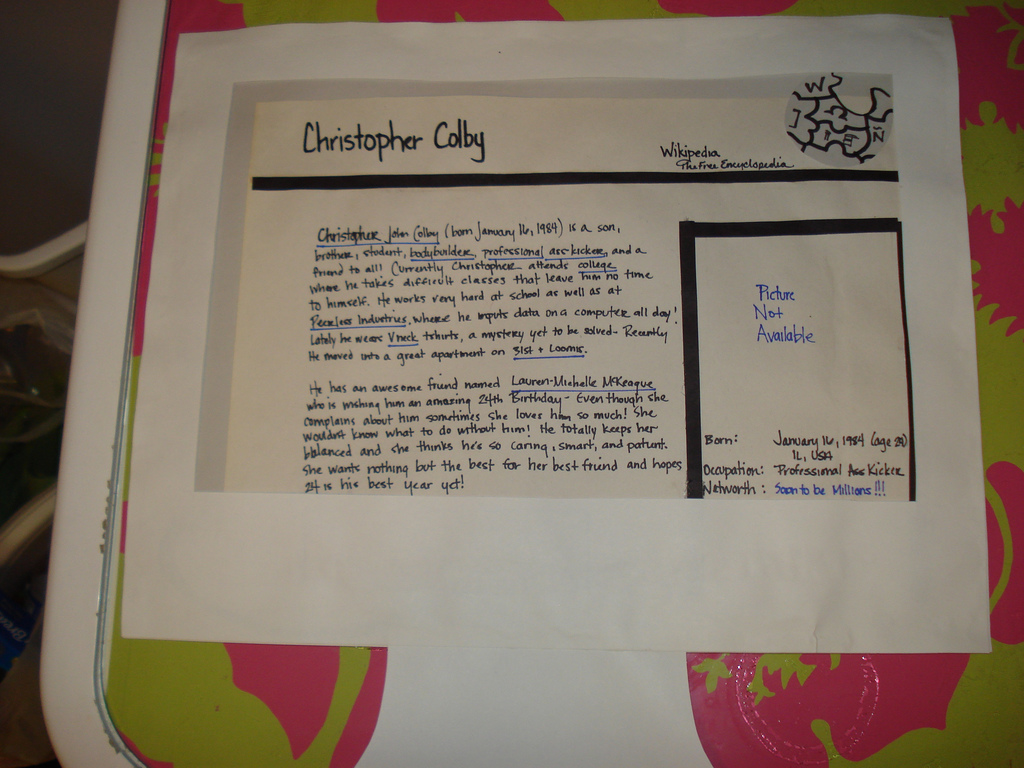 Christopher Colby
Wikipedia
The Free Encyclopedia
W
Christopher John Colby (born January 16, 1984) is a son,
brother, student, bodybuilder, professional ass-kicker, and a
friend to all! Currently Christopher attends college
where he takes difficult classes that leave him no time
to himself. He works very hard at school as well as at
Peerless Industries, where he inputs data on a computer all day!
Lately he wears Vneck tshirts, a mystery yet to be solved- Recently
He moved into a great apartment on 31st + Loomis.
He has an awesome friend named Lauren-Michelle McKeague
who is wishing him an amazing 24th Birthday- Even though she
complains about him sometimes she loves him so much! She
wouldnt know what to do without him! He totally keeps her
balanced and she thinks he's so caring, smart, and patient.
She wants nothing but the best for her best friend and hopes
24 is his best year yet!
Picture
Not
Available
Born: January 16, 1984 (age 24)
IL, USA
Occupation: Professional Ass Kicker
Networth: Soon to be Millions!!!